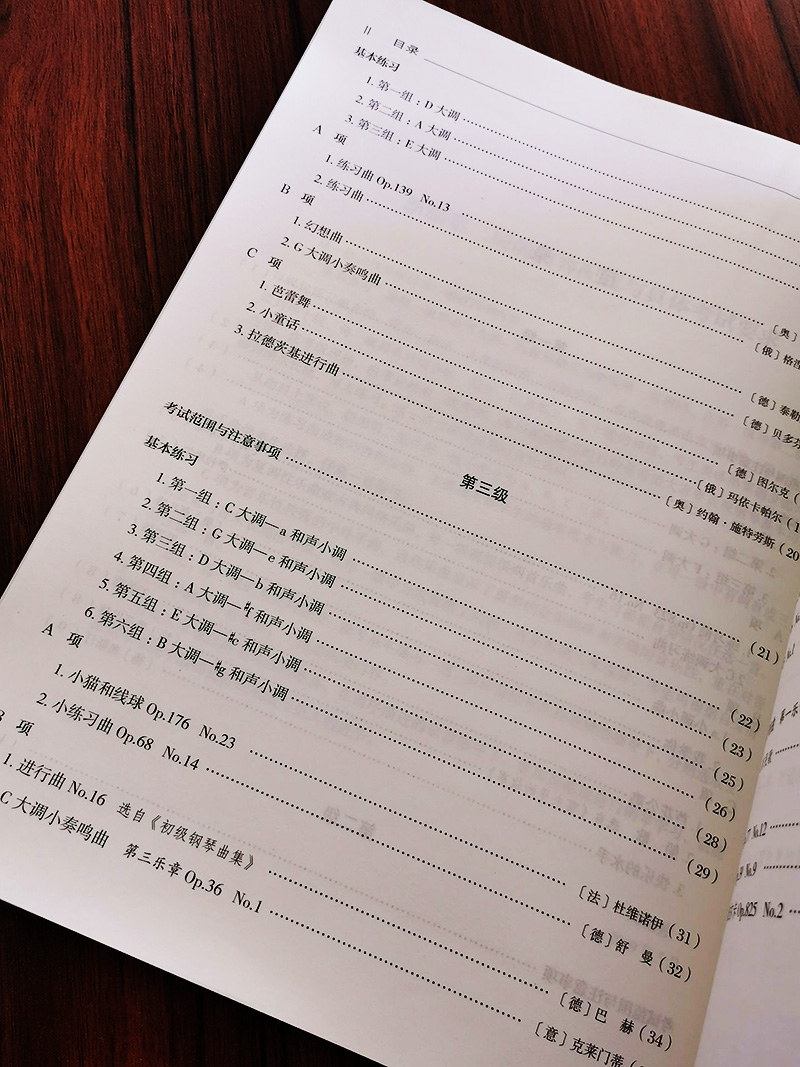 II 目录
基本练习
1. 第一组：D 大调
2. 第二组：A 大调
3. 第三组：E 大调
A 项
1. 练习曲 Op.139 No.13 〔奥〕
2. 练习曲 〔俄〕格
B 项
1. 幻想曲 〔德〕泰勒
2. G 大调小奏鸣曲 〔德〕贝多
C 项
1. 芭蕾舞 〔德〕图尔克（
2. 小童话 〔俄〕玛依卡帕尔（
3. 拉德茨基进行曲 〔奥〕约翰·施特劳斯（20
第三级
考试范围与注意事项 （21）
基本练习
1. 第一组：C 大调—a 和声小调 （22）
2. 第二组：G 大调—e 和声小调 （23）
3. 第三组：D 大调—b 和声小调 （25）
4. 第四组：A 大调—#f 和声小调 （26）
5. 第五组：E 大调—#c 和声小调 （28）
6. 第六组：B 大调—#g 和声小调 （29）
A 项
1. 小猫和线球 Op.176 No.23 〔法〕杜维诺伊（31）
2. 小练习曲 Op.68 No.14 〔德〕舒 曼（32）
B 项
1. 进行曲 No.16 选自《初级钢琴曲集》 〔德〕巴 赫（34）
C 大调小奏鸣曲 第三乐章 Op.36 No.1 〔意〕克莱门蒂（
No.12
No.9
Op.825 No.2